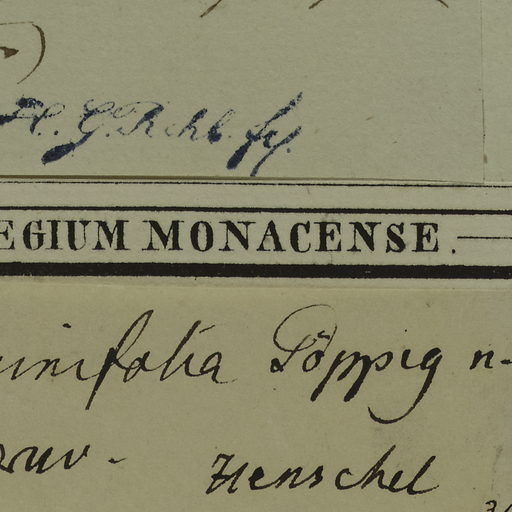 H. G. Rchb. fil.
EGIUM MONACENSE.
inifolia Pöppig n-
ruv. Henschel